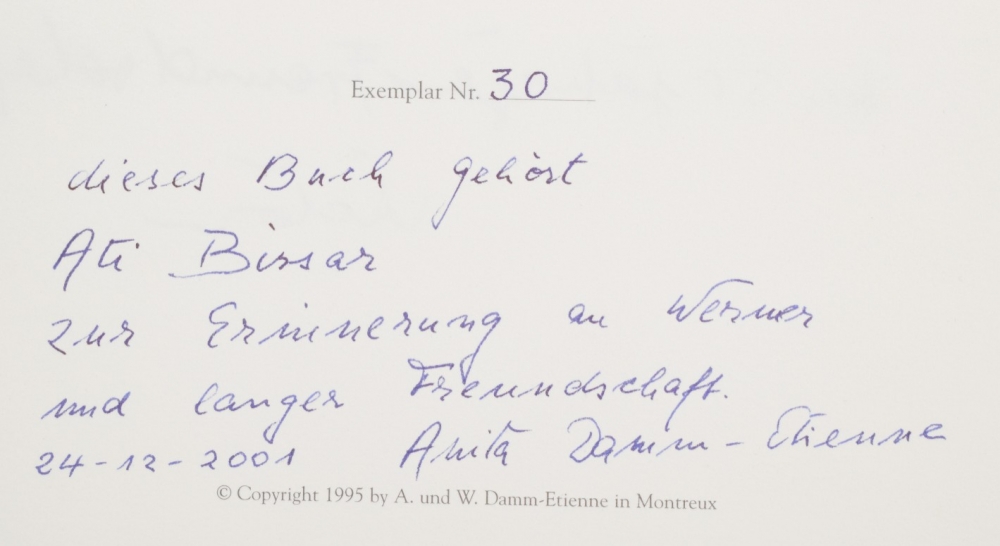 Exemplar Nr. 30
dieses Buch gehört
Ati Bissar
zur Erinnerung an Werner
und langer Freundschaft.
24-12-2001 Anita Damm-Etienne
© Copyright 1995 by A. und W. Damm-Etienne in Montreux